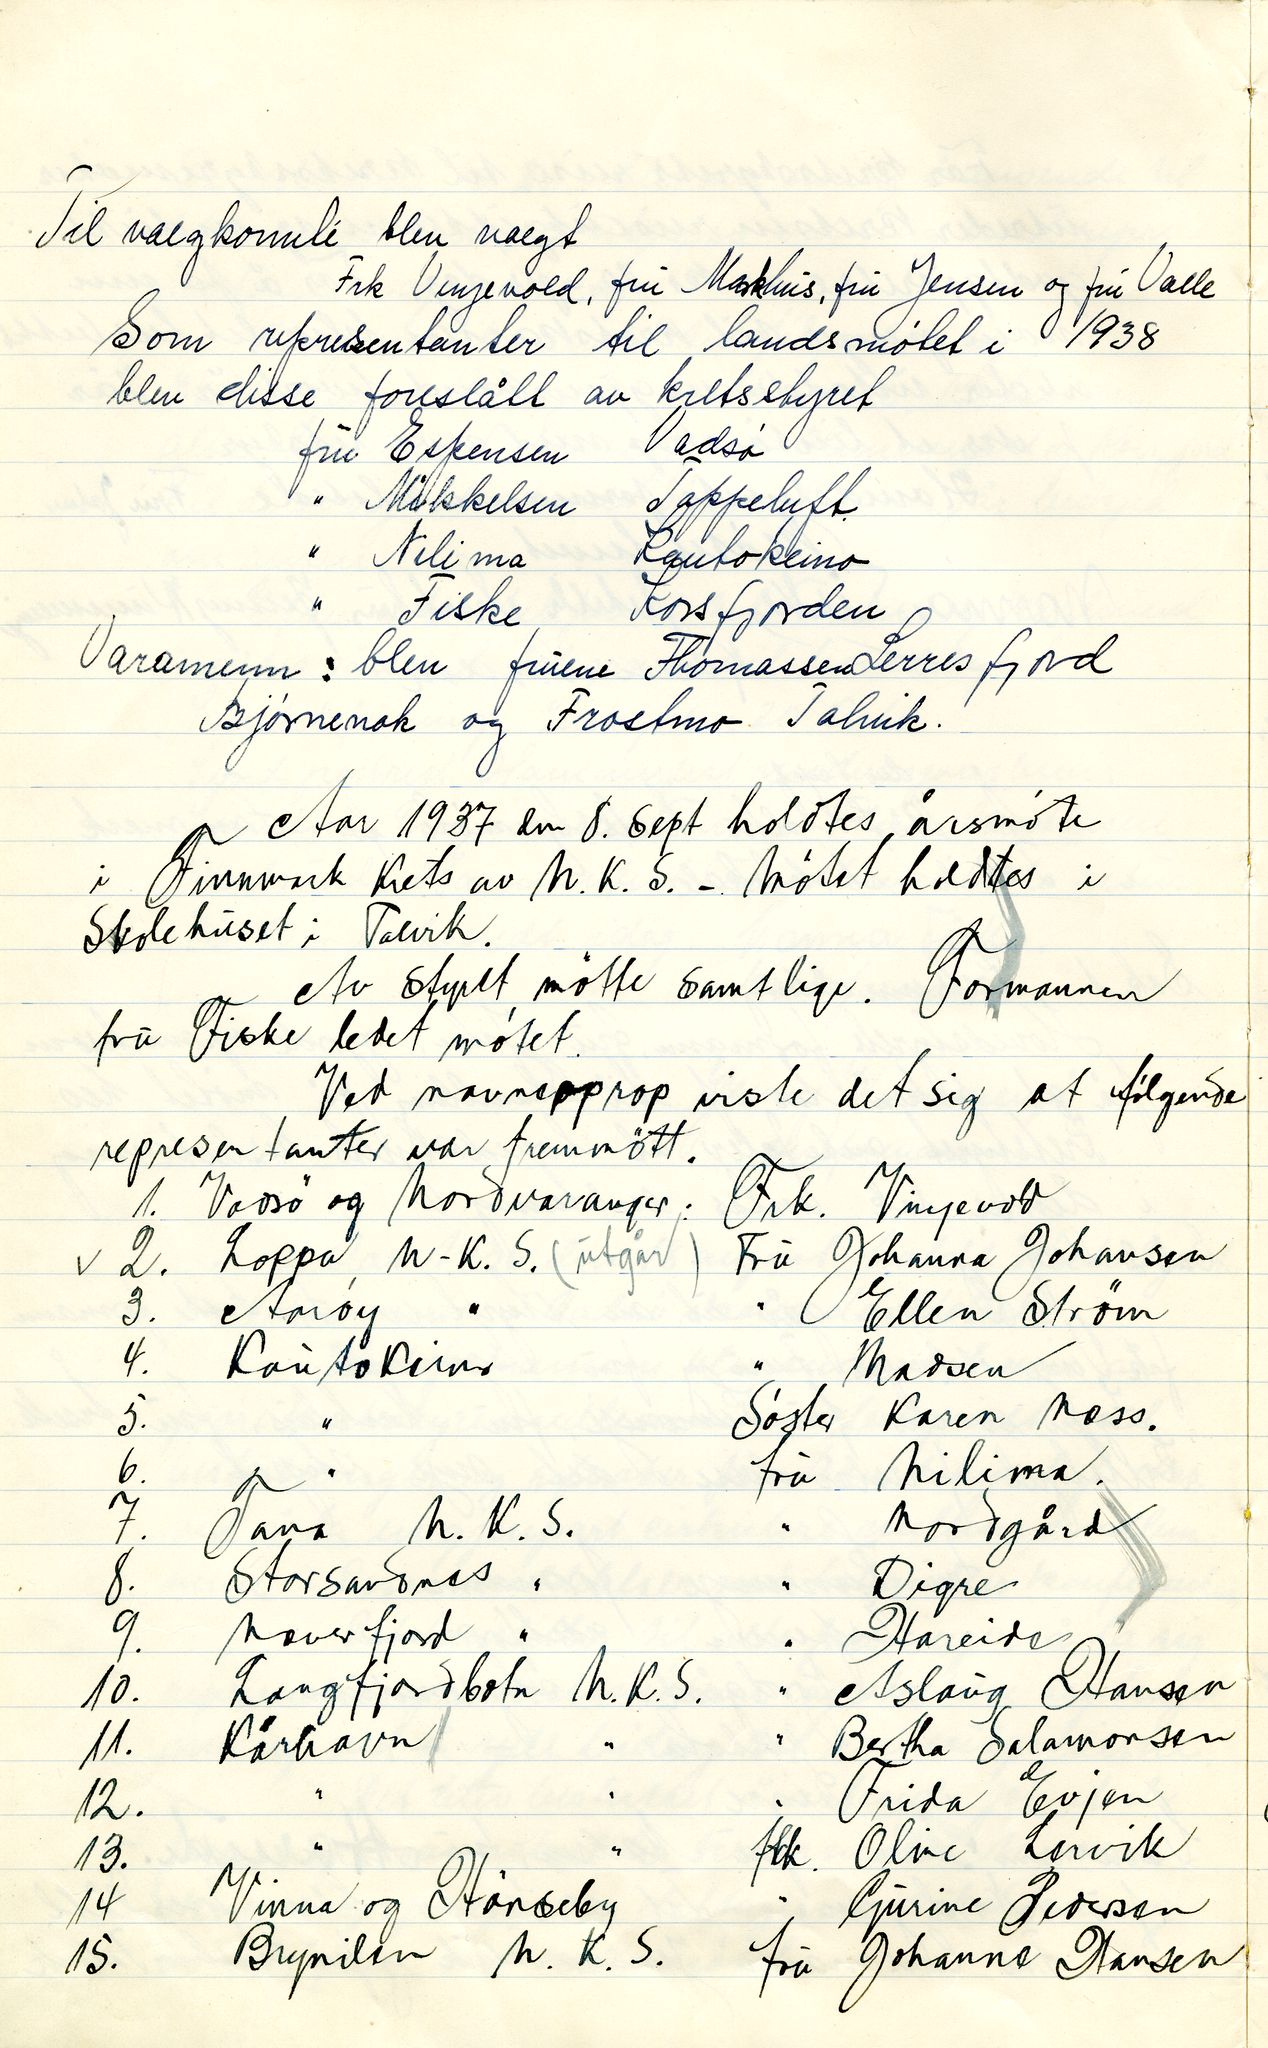 Til valgkomité blev valgt
Frk Vingevold, frú Markhus, frú Jensen og frú Valle
Som representanter til landsmøtet i 1938
blev disse foreslått av kretsstyret
frú Espensen Vadsø
" Mikkelsen Tappeluft.
" Nilima Kautokeino
" Fiske Korsfjorden
Varamenn: blev frúene Thomassen Lerresfjord
Bjørnenak og Frostmo Talvik.
Aar 1937 den 8. Sept holdtes årsmöte
i Finnmark Krets av N.K.S. - Mötet holdtes i
Skolehúset i Talvik.
Av Styret mötte samtlige. Formannen
frú Fiske ledet mötet.
Ved navneopprop viste det sig at følgende
representanter var fremmött.
1. Vadsö og Nordvaranger: Frk. Vingevold
v 2. Loppa, N-K.S. (útgår) Frú Johanna Johansen
3. Aaröy " " Ellen Ström
4. Kaútokeino " Madsen
5. " Söster Karen Næss.
6. " frú Nilima.
7. Tana N.K.S. " Nordgård
8. Storsandnes " " Digre
9. Neverfjord " " Hareide
10. Langfjordbotn N.K.S. " Aslaúg Hansen
11. Kårhavn " " Bertha Salamonsen
12. " " " Frida Evjen
13. " " frk. Oline Lervik
14 Vinna og Hönseby " Gjúrine Pedersen
15. Brynilen N.K.S. frú Johanne Hansen